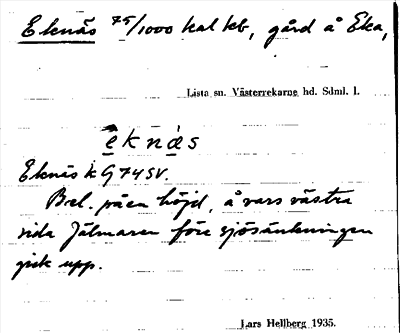 Eknäs 75/1000 kal kb, gård å Eka,
Lista sn. Västerrekarne hd. Sdml. l.
eknäs
Eknäs k G 74 SV.
Bel. på en höjd, å vars västra
sida Jälmaren före sjösänkningen
gick upp.
Lars Hellberg 1935.